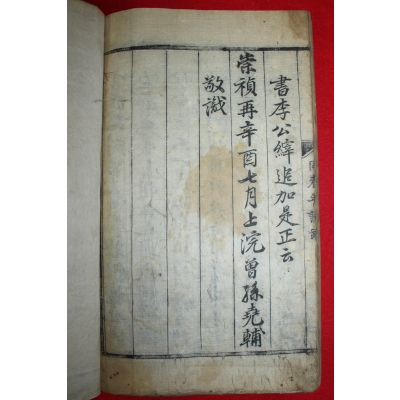 書李公縡追加是正云
崇禎再辛酉七月上浣曾孫堯輔
敬識